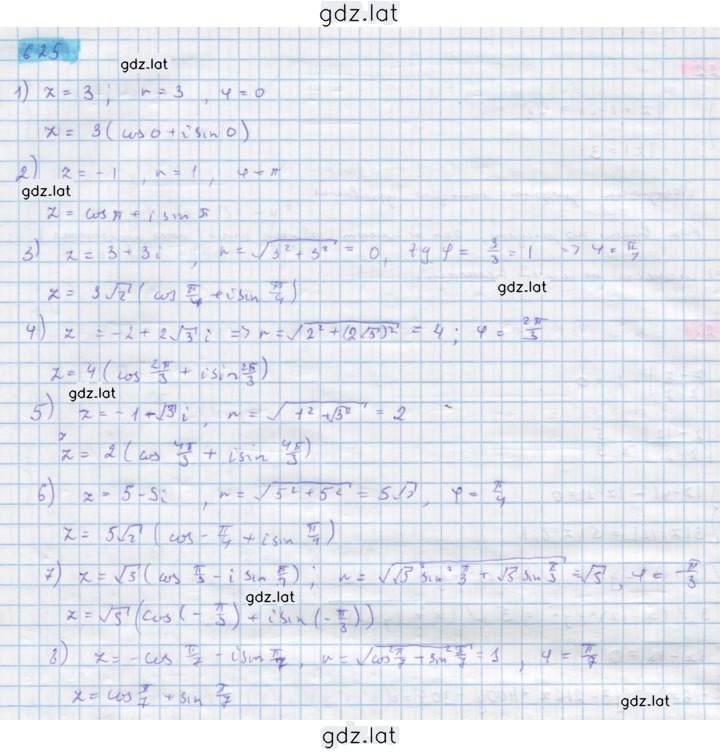 gdz.lat
625
gdz.lat
1) z = 3 ; r = 3 , φ = 0
z = 3 ( cos 0 + i sin 0 )
2) z = - 1 , r = 1 , φ = π
gdz.lat
z = cos π + i sin π
3) z = 3 + 3i , r = √(3² + 3²) = 0, tg φ = 3/3 = 1 => φ = π/4
gdz.lat
z = 3√2 ( cos π/4 + i sin π/4 )
4) z = -2 + 2√3 i => r = √(2² + (2√3)²) = 4 ; φ = 2π/3
z = 4 ( cos 2π/3 + i sin 2π/3 )
gdz.lat
5) z = - 1 - √3 i , r = √(1² + √3²) = 2
z = 2 ( cos 4π/3 + i sin 4π/3 )
6) z = 5 - 5i , r = √(5² + 5²) = 5√2 , φ = π/4
z = 5√2 ( cos - π/4 + i sin π/4 )
7) z = √5 ( cos π/3 - i sin ) ; = √5 , φ = - π/3
gdz.lat
z = √5 ( cos ( - π/3 ) + i sin ( - π/3 ) )
8) z = - cos π/7 - i sin π/7 , r = √(cos² π/7 + sin² π/7) = 1 , φ = π/7
z = cos π/7 + sin π/7
gdz.lat
gdz.lat